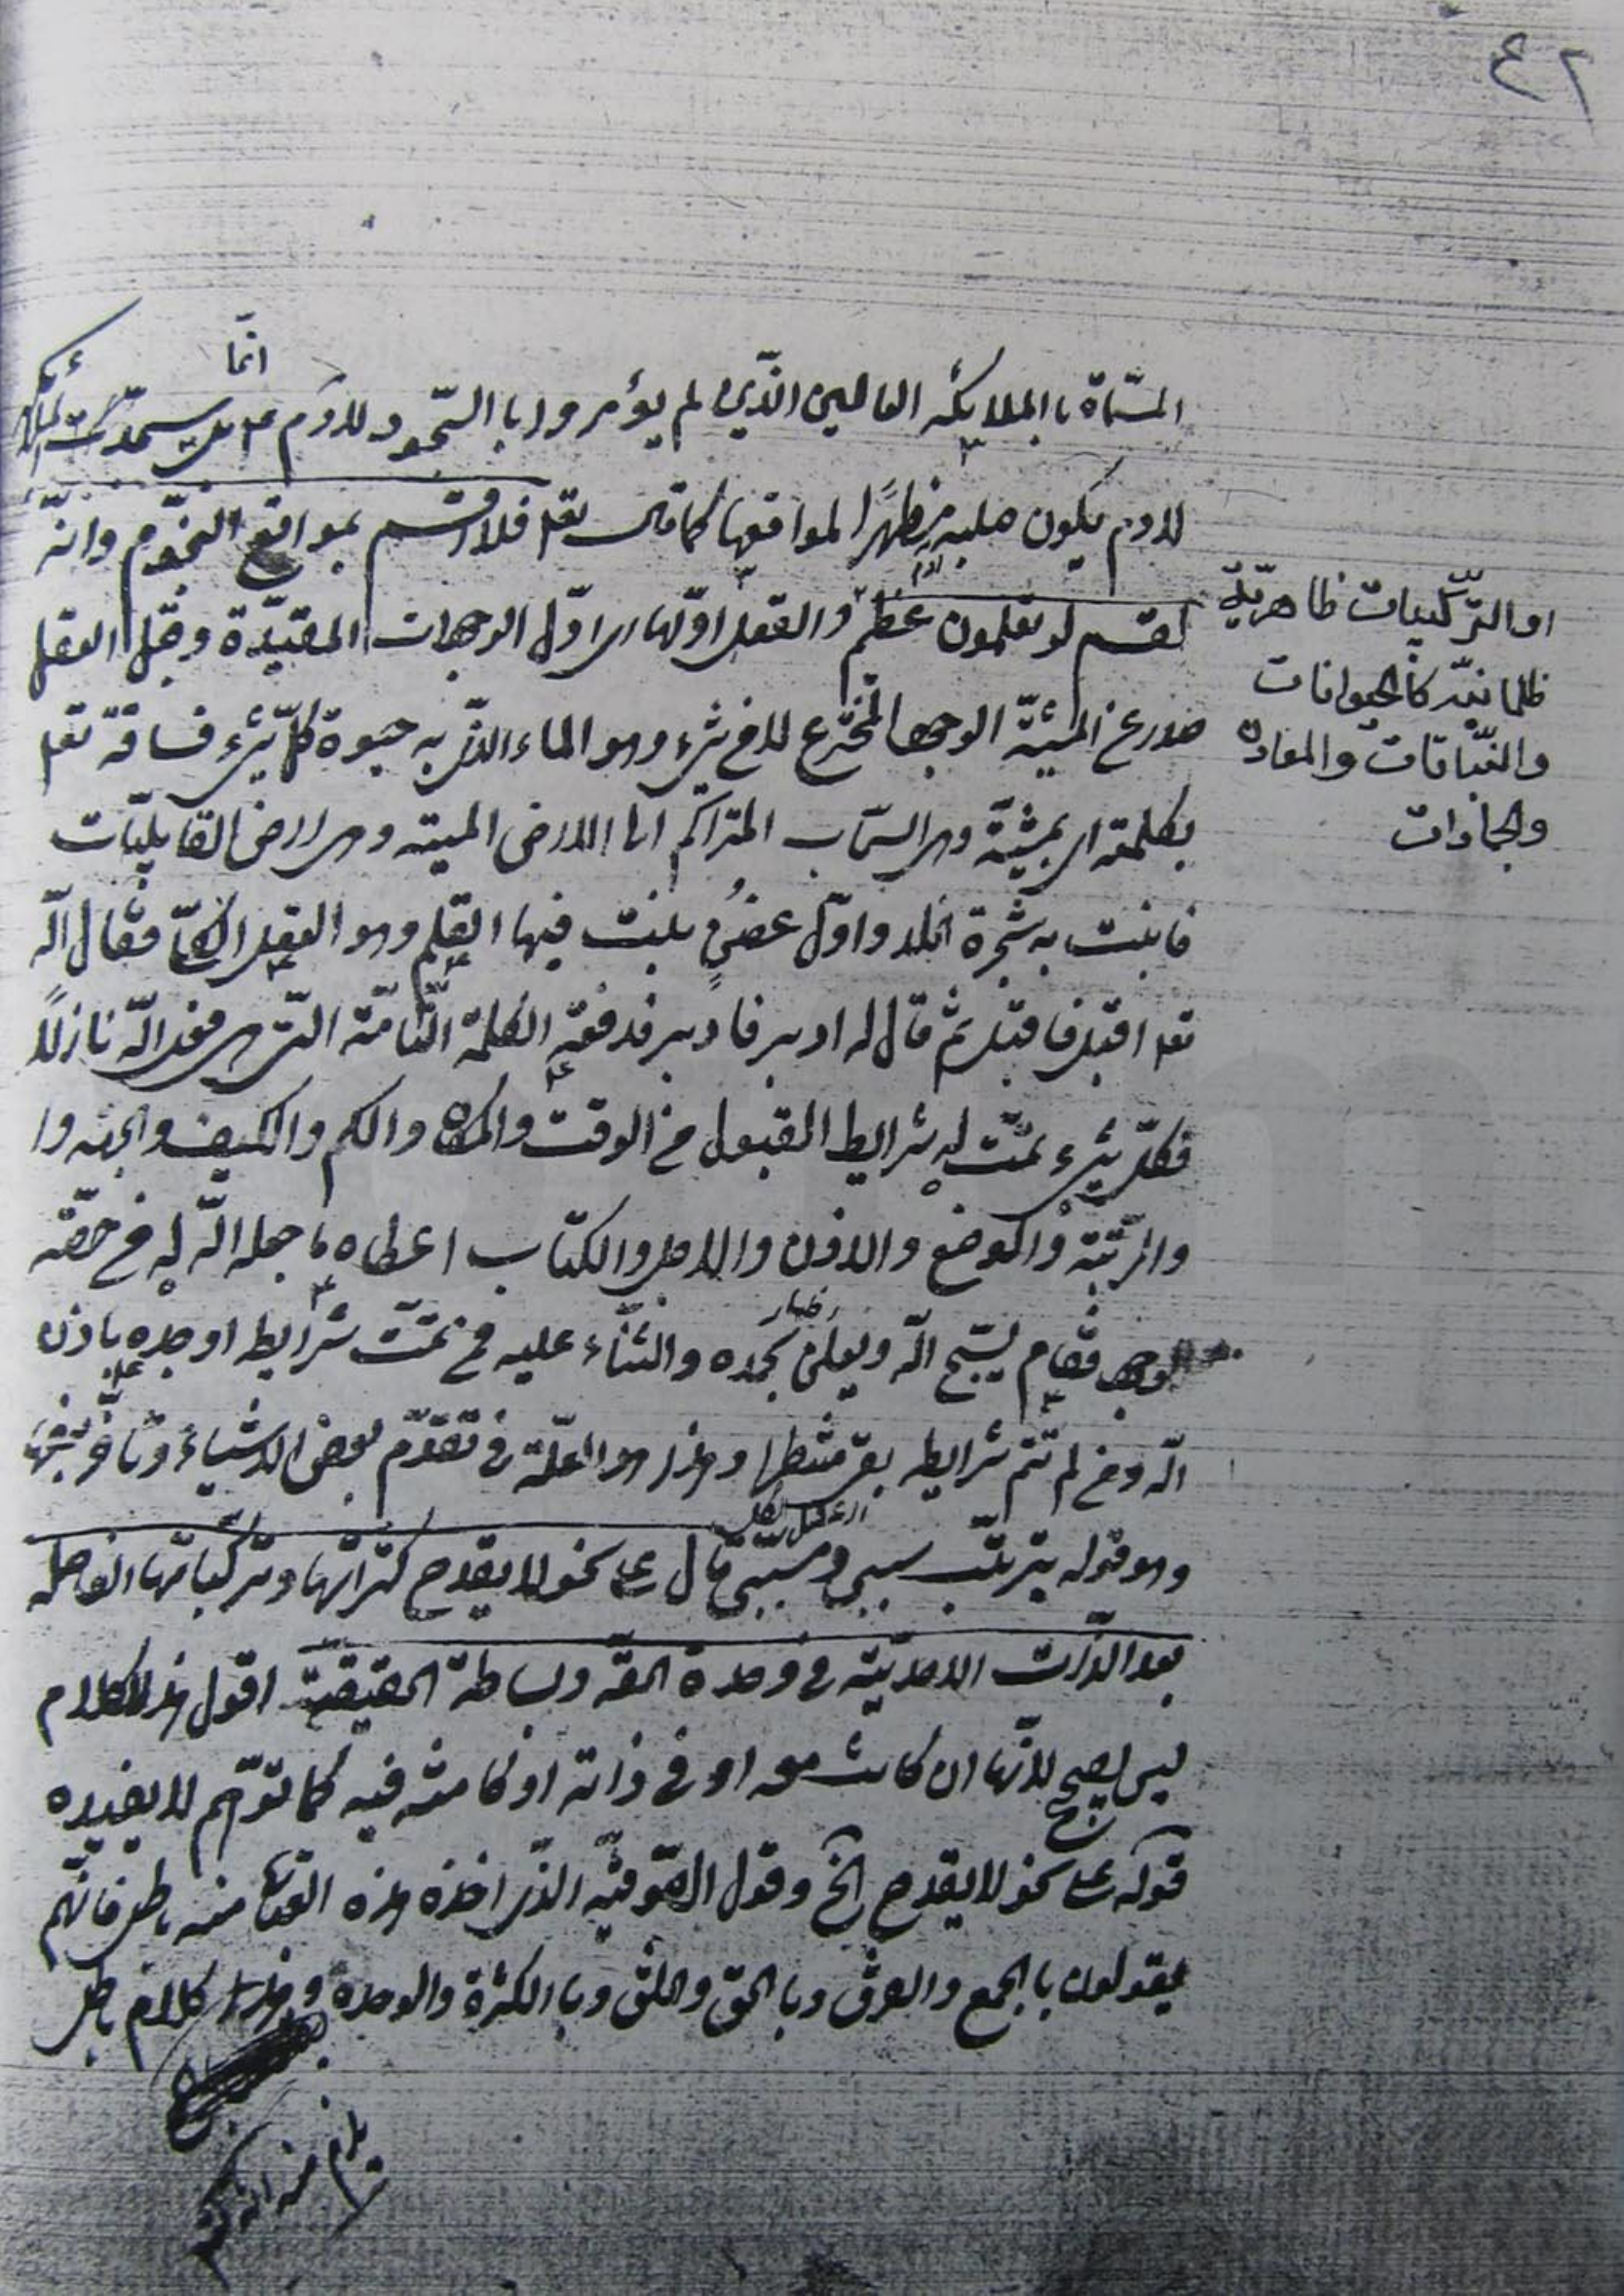 ٤٢
انّما
المسمّاة باالملايكة العالين الذّين لم يؤمروا باالسّجود لادم ع بل سجدت الملائكة
لادم يكون صلبه مظهرًا لمواقعها كما قال تعا فلا اقسم بمواقع النجّوم وانّه
لقسم لو تعلمون عظيم والعقل اوّلها اى اوّل الوجودات المقيّدة وقبل العقل
صدر عن المشيّة الوجود المخترع لا من شىء وهو الماء الذّى به حيوة كلّ شىء فساقه تعا
بكلمته اى بمشيّة وهى السّحاب المتراكم الى الارض الميته وهى ارض القابليّات
فانبت به شجرة الخلد واوّل غصنٍ نبت فيها القلم وهو العقل الكلّى فقال الّه
تعا اقبل فاقبل ثم قال له ادبر فادبر فدفعته الكلمة التّامّة التّى هى فعل الّه نازلًا
فكلّ شىء تمّت له شرايط القبول من الوقت والمكان والكم والكيف والجهة وا
والرّتبة والوضع والاذن والاجل والكتاب اعطاه ما جعله الّه له من حصّته
الوجود فقام يسبّح الّه ويعلن بحمده والثنّاء عليه فمن تمّت شرايطه اوجده باذن
الّه ومن لم تتم شرايطه بقى منتظرا وهذا هو العلّة فى تقدّم بعض الاشياء وتاخّر بعضها
وهو قوله بترتّب سببى ومسبّبى قال على نحو لا يقدح كثراتها وتركّباتها الفاصله
بعد الذّات الاحديّة فى وحدة الحقّه وبساطة الحقيقيّة اقول هذا الكلام
ليس بصحيح لانّها ان كانت معه او فى ذاته او كامنة فيه كما توّهم لا يفيده
قوله على نحو لا يقدح الخ وقول الصّوفيّه الذّى اخذ هذه العبارة منه باطل فانّهم
يقولون باالجمع والفرق وباالحق والخلق وباالكثرة والوحدة وهذا كلام باطل
يلزم منه التركيب
او التركّيبات ظاهريّة
ظلمانيّه كالحيوانات
والنّباتات والمعادن
والجمادات